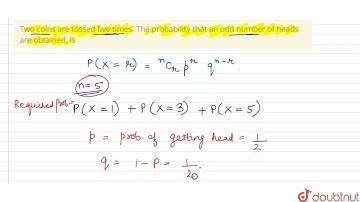 Two coins are tossed five times. The probability that an odd number of heads
are obtained, is
P(X = r) = ⁿCᵣ pʳ qⁿ⁻ʳ.
n=5
Required prob = P(X = 1) + P(X = 3) + P(X = 5)
p = prob. of getting head = 1/2
q = 1 - P = 1/2.
doubtnut